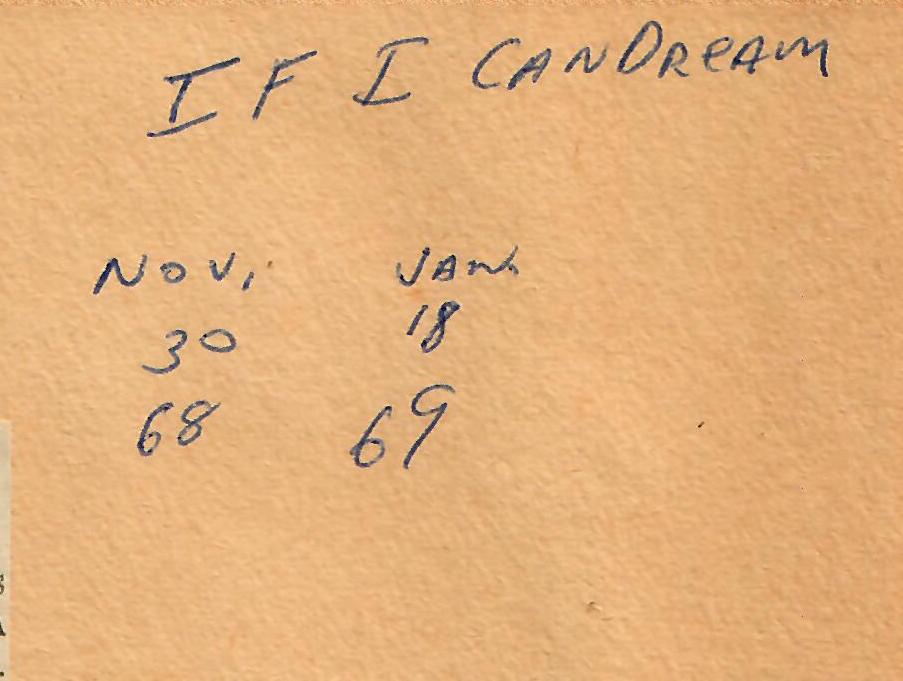 IF I CANDREAM
NOV. JAN.
30 18
68 69
S
A
.